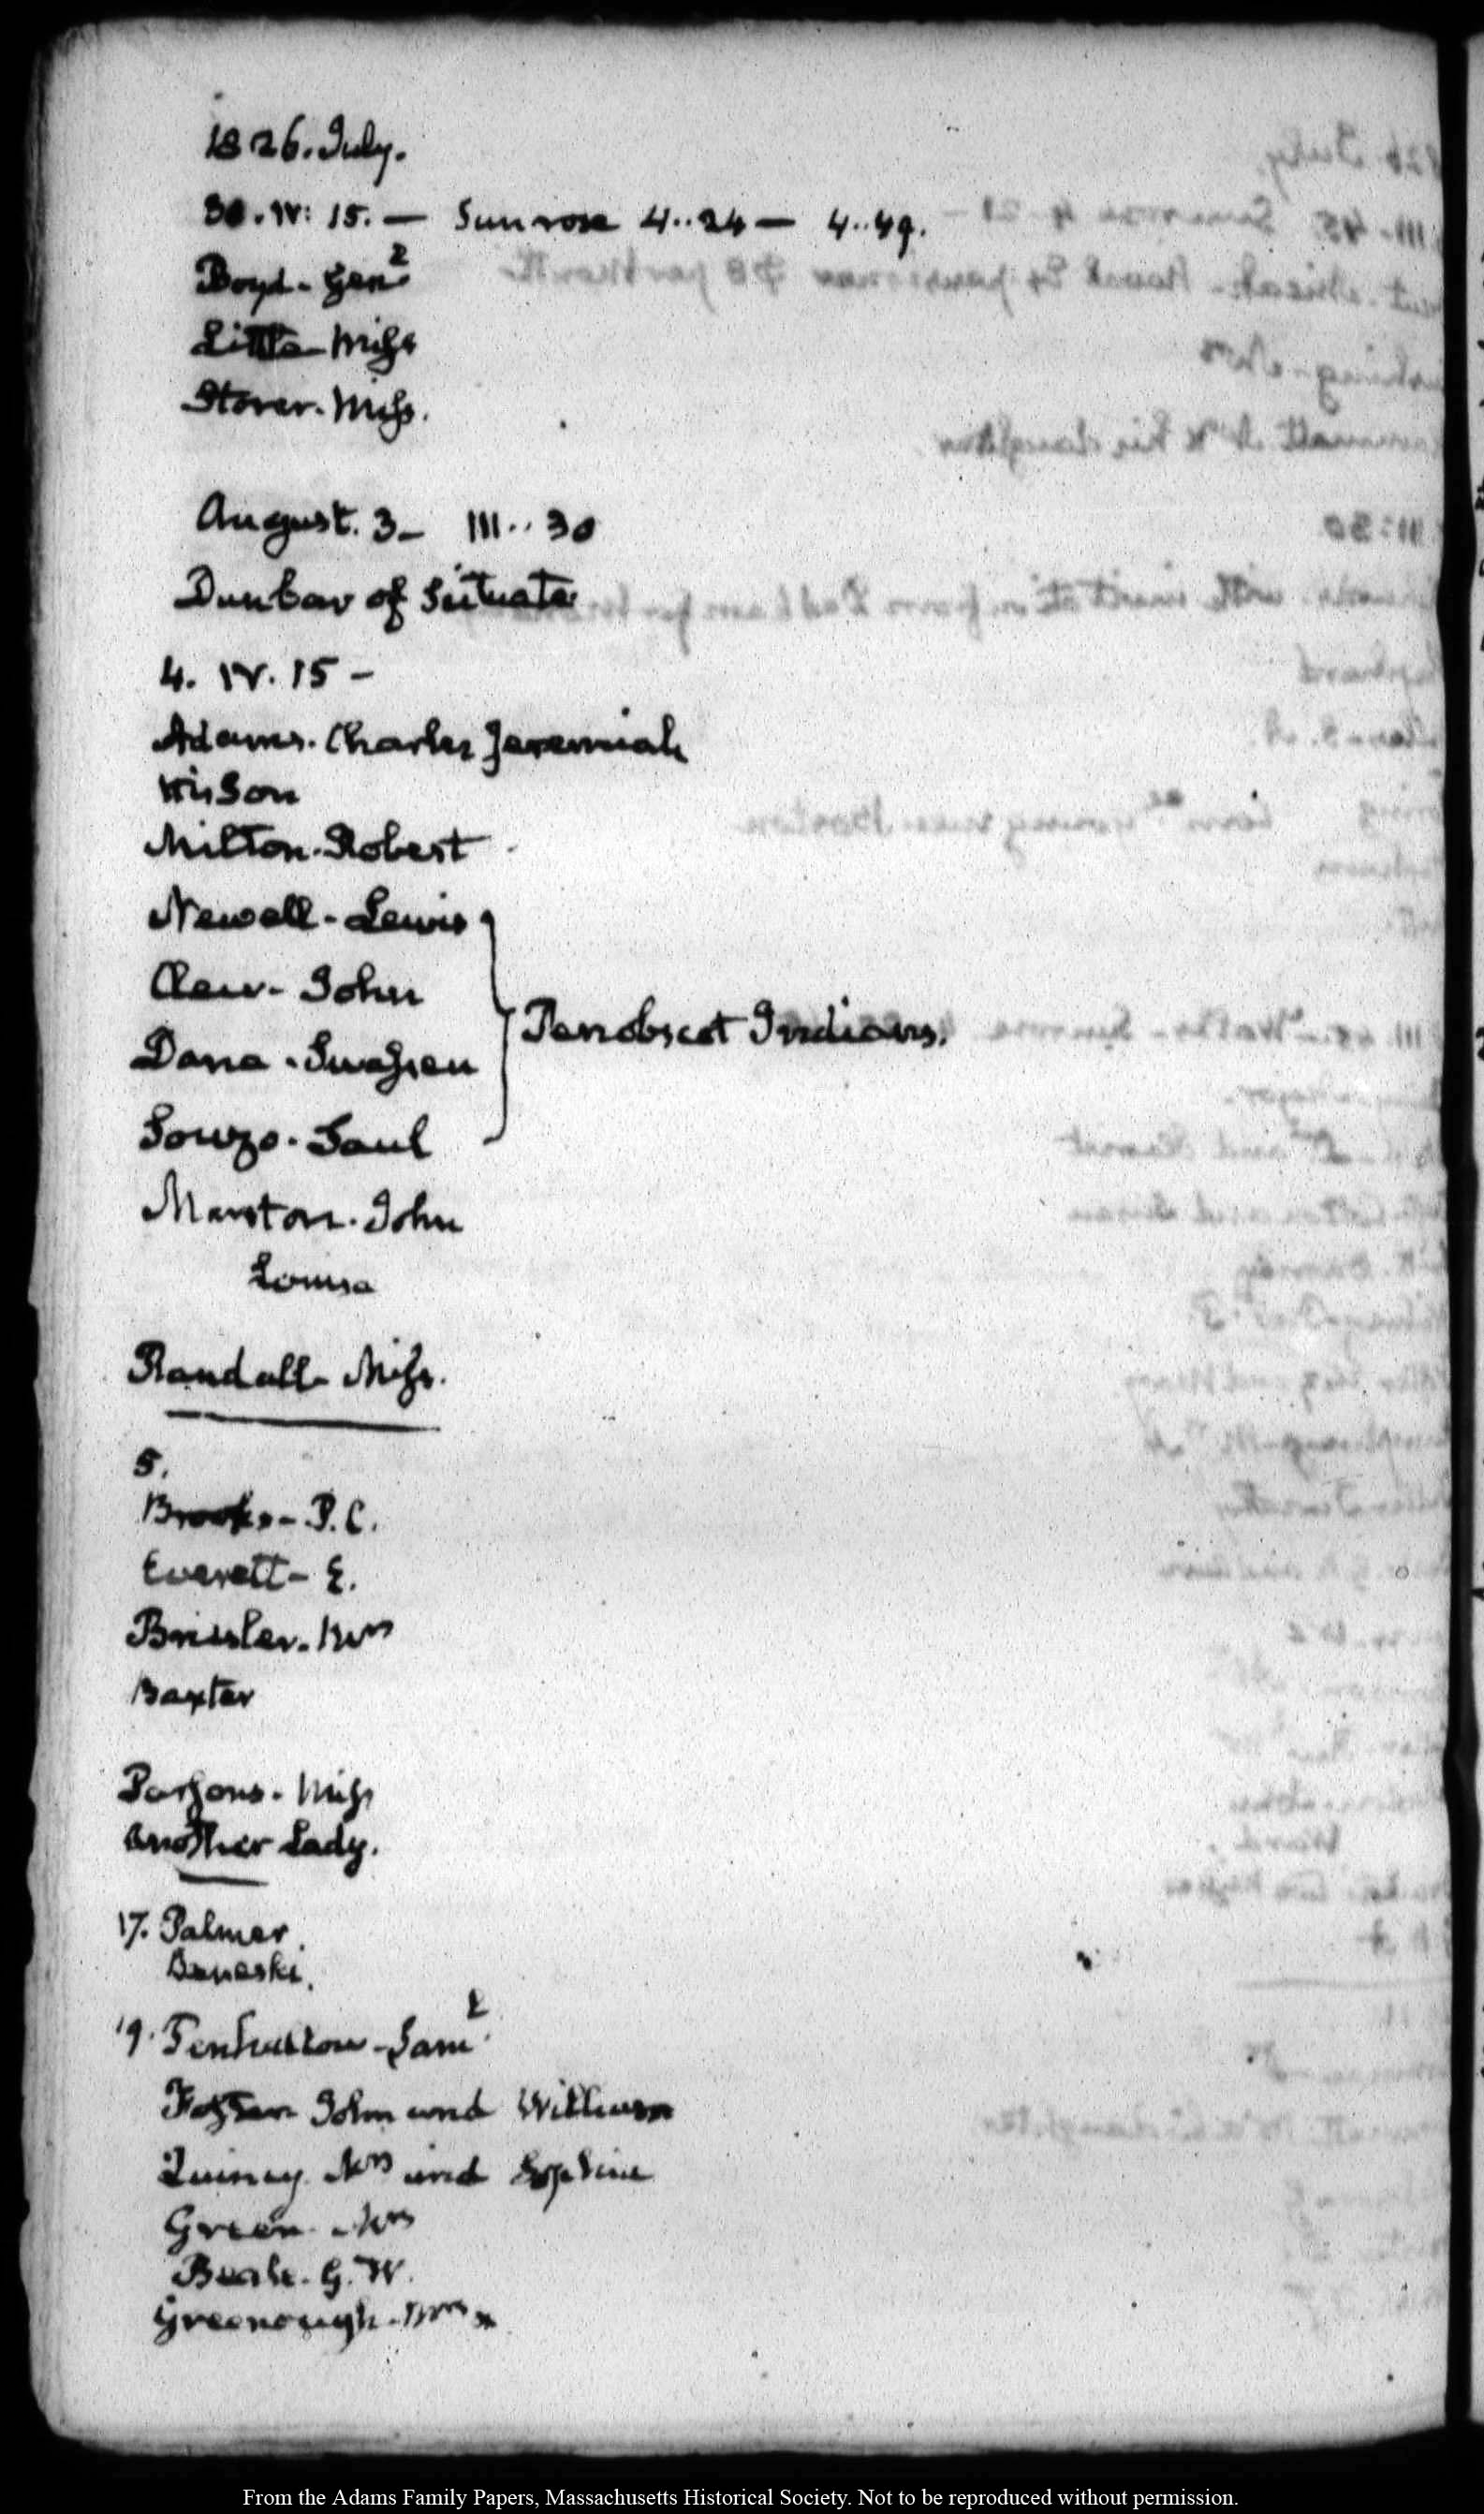 1826. July.
30. IV: 15. — Sun rose 4..24 — 4..49.
Boyd - Genl
Little - Miss
Storer - Miss.
August. 3 - III.. 30
Dunbar of Scituate
4. IV. 15 -
Adams. Charles Jeremiah
Wilson
Milton. Robert
Newell - Lewis
Clew - John
Penobscot Indians.
Dana - Swassen
Sowzo - Saul
Marston. John
Louisa
Randall - Miss.
5.
Brooks - P. C.
Everett - E.
Brisler - Mrs
Baxter
Parsons - Miss
Another Lady.
17. Palmer.
Beneski.
19. Tenhallow - Saml
Foster John and William
Quincy Mrs and
Green - Mrs
Beale - G. W.
Greenough - Mrs
From the Adams Family Papers, Massachusetts Historical Society. Not to be reproduced without permission.